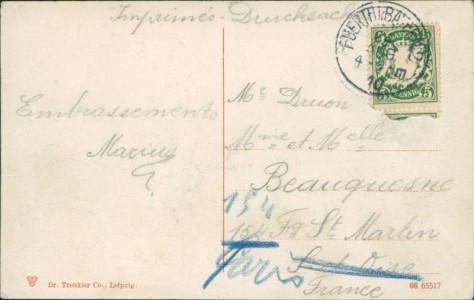 Imprimés - Drucksache
FUERTH (BAY.)
BAYERN
5 PFENNIG 5
Embrassements
Marius
Mr Druon
Mme et Melle
Beauquesne
154
154 Fg St Martin
Paris
S et Oise
France
Dr. Trenkler Co., Leipzig.
06 65517